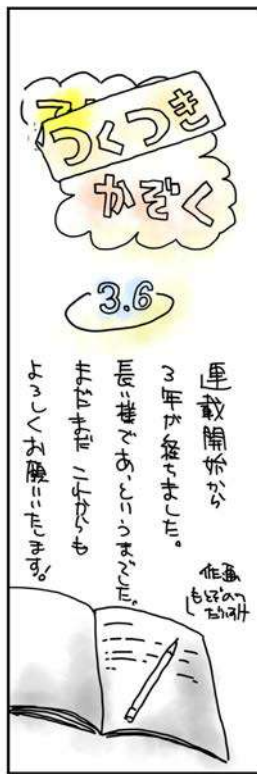 つくつき
かぞく
3.6
連載開始から
3年が経ちました。
長い様であっというまでした。
まだまだ これからも
よろしくお願いいたします！
作画